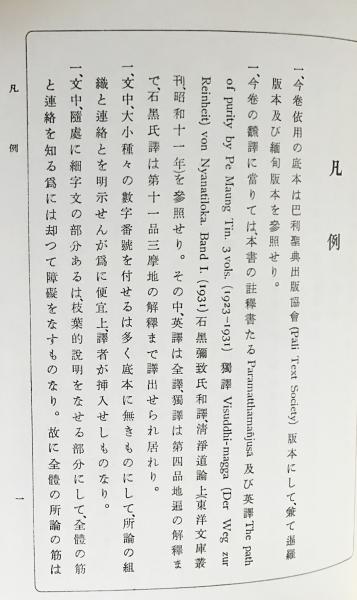 凡例
一、今卷依用の底本は巴利聖典出版協會(Pali Text Society)版本にして、兼て暹羅
版本及び緬甸版本を參照せり。
一、今卷の飜譯に當りては、本書の註釋書たる Paramatthamañjusā 及び英譯 The path
of purity by Pe Maung Tin. 3 vols. (1923-1931) 獨譯 Visuddhi-magga (Der Weg zur
Reinheit) von Nyanatiloka. Band I. (1931) 石黑彌致氏和譯、淸淨道論上(東洋文庫叢
刊、昭和十一年)を參照せり。その中、英譯は全譯、獨譯は第四品地遍の解釋ま
で、石黑氏譯は第十一品三摩地の解釋まで譯出せられ居れり。
一、文中、大小種々の數字番號を付せるは多く底本に無きものにして、所論の組
織と連絡とを明示せんが爲に便宜上、譯者が挿入せしものなり。
一、文中、隨處に細字文の部分あるは、枝葉的說明をなせる部分にして、全體の筋
と連絡を知る爲には却つて障礙をなすものなり。故に全體の所論の筋は
凡例
一